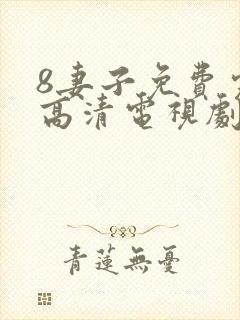 8妻子免費
高清電視劇
青蓮無憂